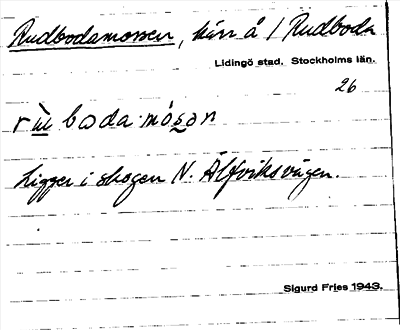 Rudbodamossen, kärr å / Rudboda
Lidingö stad. Stockholms län.
26
rùbodamósən
Ligger i skogen N. Älfviksvägen.
Sigurd Fries 1943.